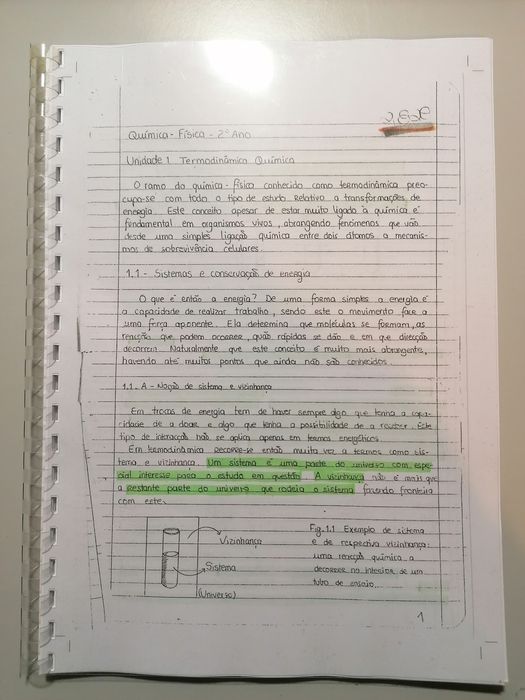 2,50€
Química - Física - 2º Ano
Unidade 1 Termodinâmica Química
O ramo da química-física conhecido como termodinâmica preo-
cupa-se com todo o tipo de estudo relativo a transformações de
energia. Este conceito apesar de estar muito ligado à química é
fundamental em organismos vivos, abrangendo fenómenos que vão
desde uma simples ligação química entre dois átomos a mecanis-
mos de sobrevivência celulares.
1.1 - Sistemas e conservação de energia
O que é então a energia? De uma forma simples a energia é
a capacidade de realizar trabalho, sendo este o movimento face a
uma força oponente. Ela determina que moléculas se formam, as
reacções que podem ocorrer, quão rápidas se dão e em que direcção
decorrem. Naturalmente que este conceito é muito mais abrangente,
havendo até muitos pontos que ainda não são conhecidos.
1.1. A - Noção de sistema e vizinhança
Em trocas de energia tem de haver sempre algo que tenha a capa-
cidade de a doar e algo que tenha a possibilidade de a receber. Este
tipo de interacção não se aplica apenas em termos energéticos.
Em termodinâmica recorre-se então muita vez a termos como sis-
tema e vizinhança. Um sistema é uma parte do universo com espe-
cial interesse para o estudo em questão. A vizinhança não é mais que
a restante parte do universo que rodeia o sistema fazendo fronteira
com este.
Vizinhança
Sistema
(Universo)
Fig. 1.1 Exemplo de sistema
e de respectiva vizinhança:
uma reacção química a
decorrer no interior de um
tubo de ensaio.
1